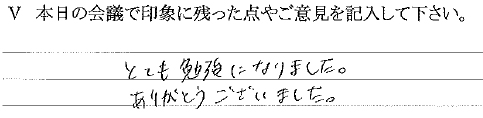 V 本日の会議で印象に残った点やご意見を記入して下さい。
とても勉強になりました。
ありがとうございました。